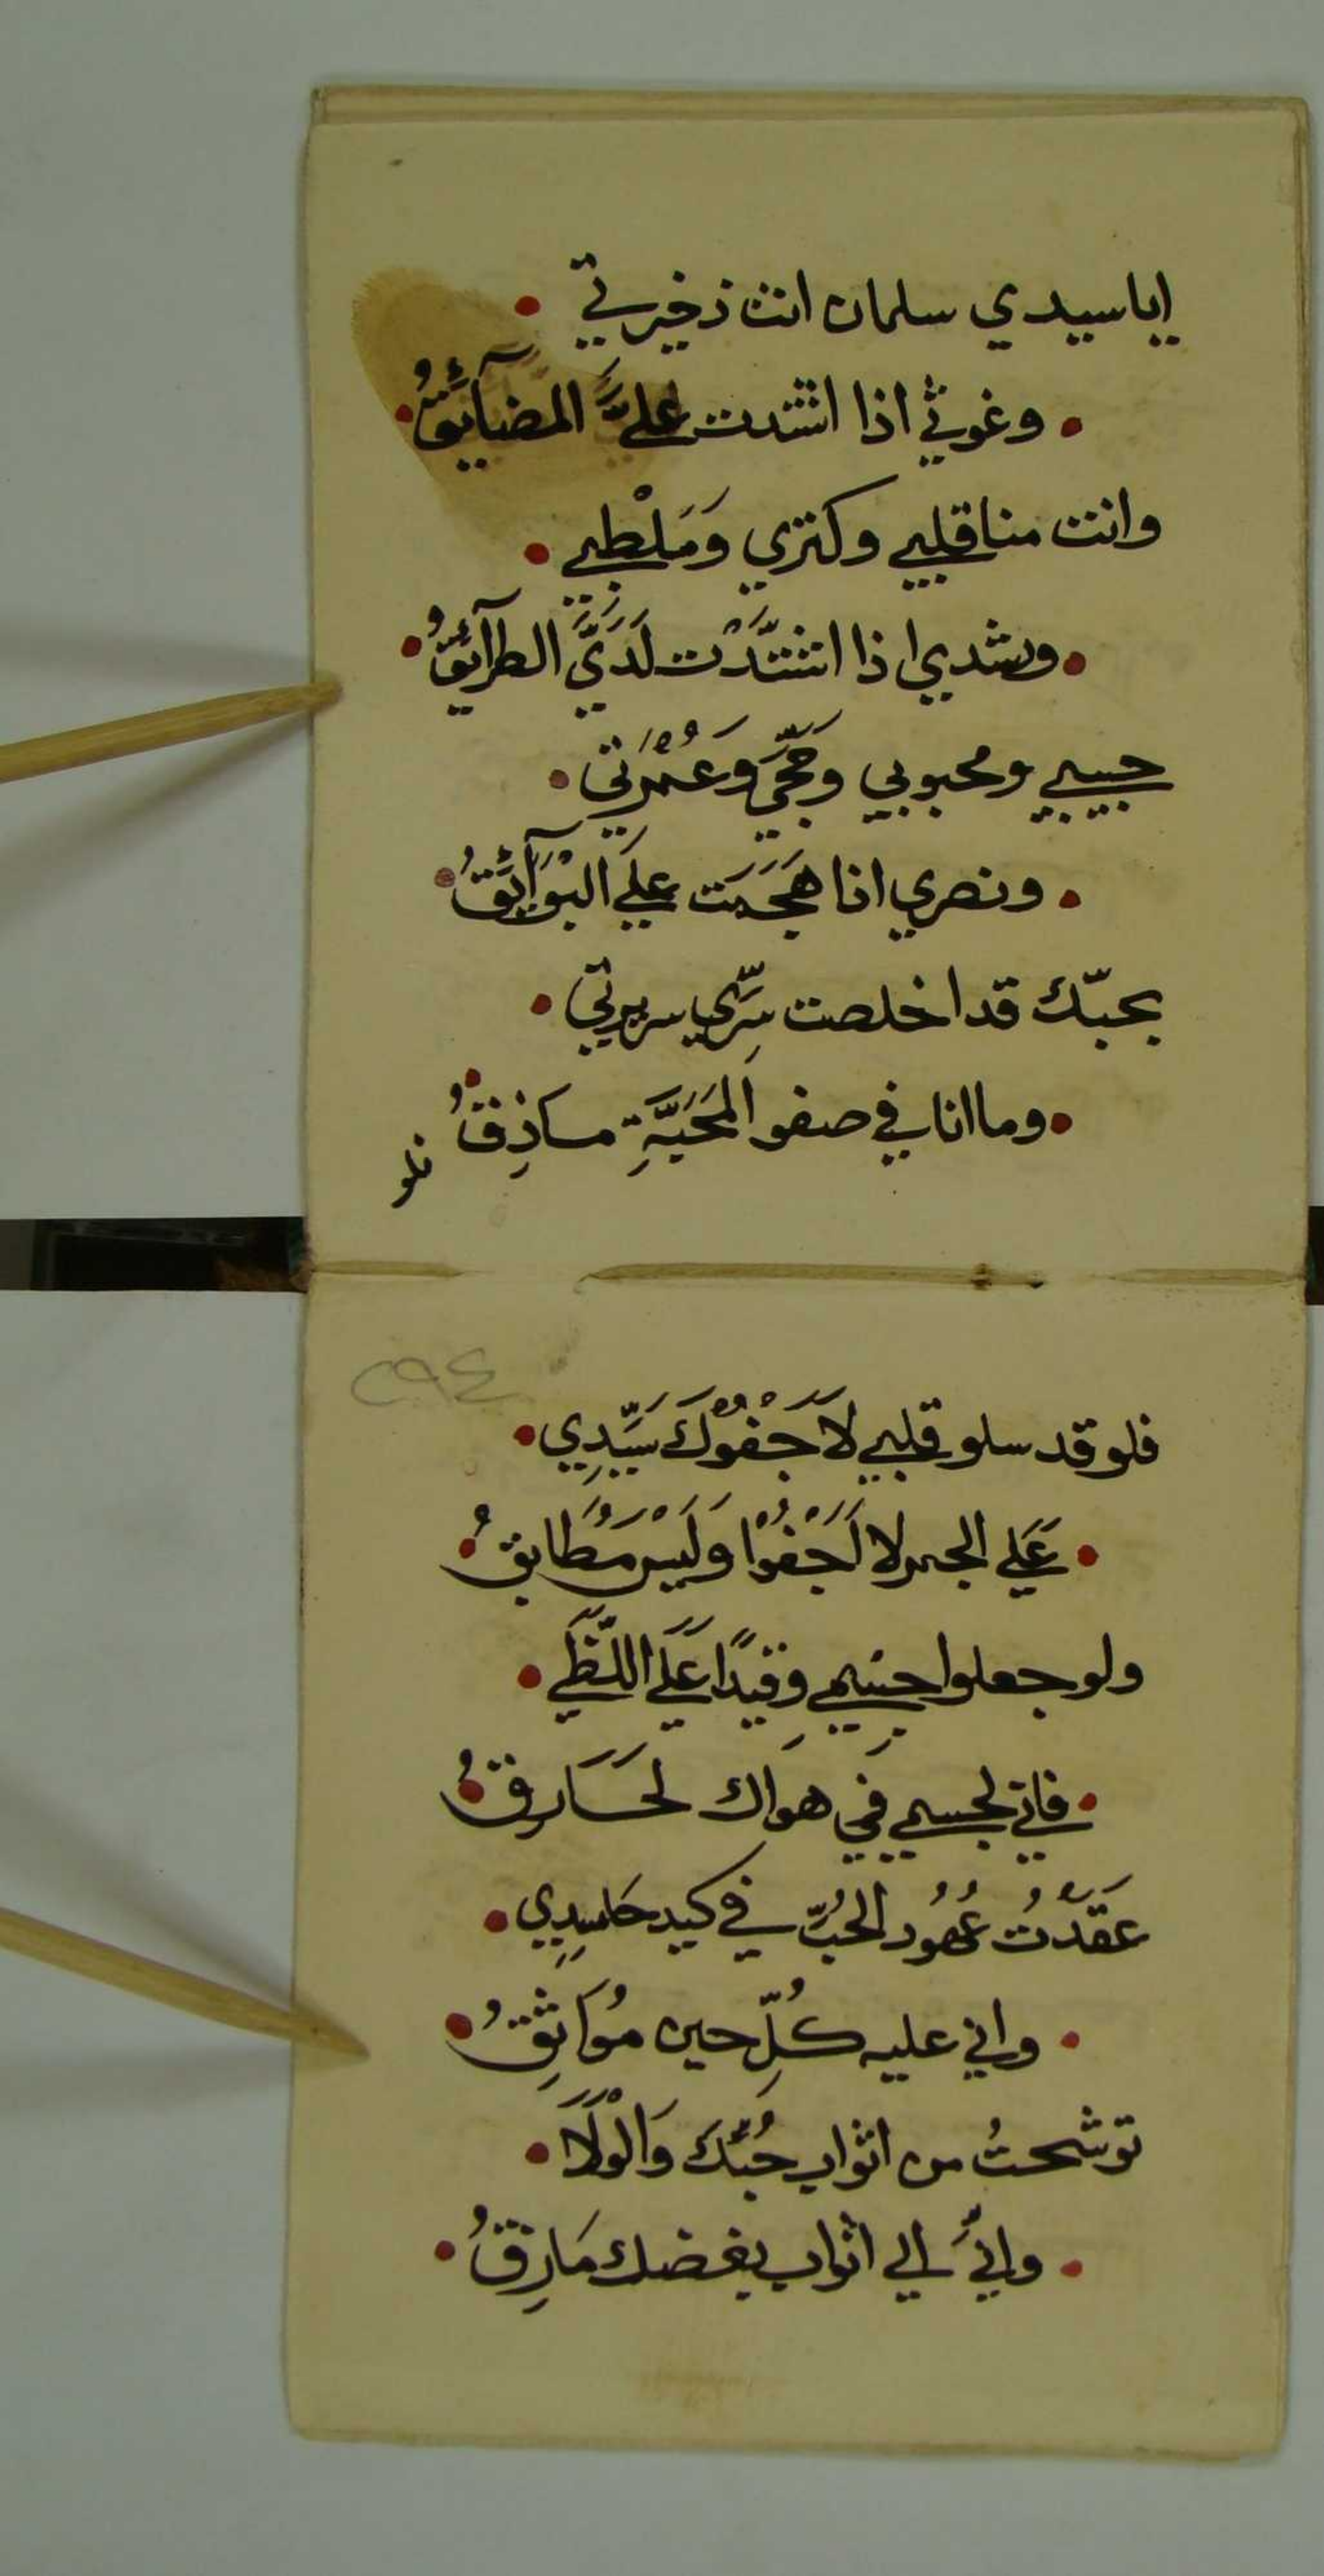 ايا سيدي سلمان انت ذخيرتي
وغوثي اذا اشتدت عليَّ المضآئقُ
وانت منا قلبي وكنزي وَمَلْطبي
ورشدي اذا اشتدَّتْ لَدَيَّ الطرآئقُ
حبيبي ومحبوبي وَحَجّي وَعُمْرَتي
ونصري اذا هَجَمَت علَي البْوَآئقُ
بحبّك قد اخلصت سِرّي سريرتي
وما انا في صفو المَحَبَّةِ ماذِقُ
فلو
٢٩٤
فلو قد سلو قلبي لاَ جَفْوُكَ سَيّدِي
عَلي الجمر لا اَجْفُوْا وَلَيْسَ مُطَابقُ
ولو جعلوا جسْمِي وِقيدًا عَلَي اللَّظَي
فاني لجسمي في هواك لَحَارقُ
عَقَدْتُ عُهُودَ الحُبِّ في كيد حَاسِدِي
واني عليه كُلِّ حين مُوَاثِقُ
توشحتُ من اثواب حُبّكَ وَالْوَلَاَ
وانِّي الي اثواب بغضك مَازِقُ